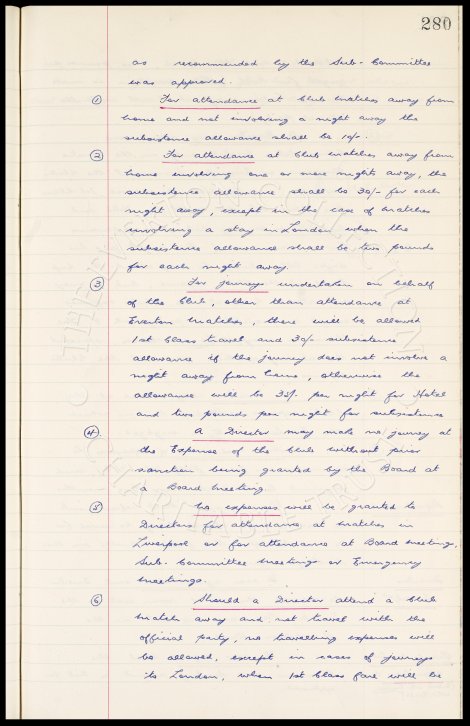 280
as recommended by the Sub-Committee
was approved.
① For attendance at Club matches away from
home and not involving a night away the
subsistence allowance shall be 10/-.
② For attendance at Club matches away from
home involving one or more nights away, the
subsistence allowance shall be 30/- for each
night away, except in the case of matches
involving a stay in London when the
subsistence allowance shall be two pounds
for each night away.
③ For journeys undertaken on behalf
of the Club, other than attendance at
Everton matches, there will be allowed
1st Class travel and 30/- subsistence
allowance if the journey does not involve a
night away from home, otherwise the
allowance will be 35/- per night for Hotel
and two pounds per night for subsistence
④ A Director may make no journey at
the Expense of the Club without prior
sanction being granted by the Board at
a Board Meeting.
⑤ No expenses will be granted to
Directors for attendance at matches in
Liverpool or for attendance at Board Meetings,
Sub-Committee meetings or Emergency
meetings.
⑥ Should a Director attend a Club
match away and not travel with the
official party, no travelling expenses will
be allowed, except in cases of journeys
to London, when 1st Class fare will be